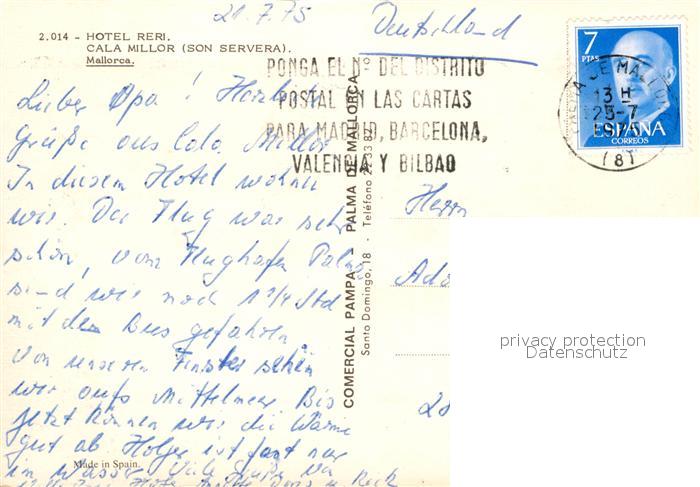 21.7.75
Deutschland
2.014 - HOTEL RERI.
CALA MILLOR (SON SERVERA).
Mallorca.
PONGA EL Nº DEL DISTRITO
POSTAL EN LAS CARTAS
PARA MADRID, BARCELONA,
VALENCIA Y BILBAO
7
PTAS
ESPAÑA
CORREOS
13 H
25-7
(8)
Lieber Opa! Herzliche
Grüße aus Cala Millor
In diesem Hotel wohnen
wir. Der Flug war sehr
schön, vom Flughafen Palma
sind wir noch 1 3/4 Std
mit dem Bus gefahren
Von unserem Fenster sehen
wir aufs Mittelmeer Bis
jetzt können wir die Wärme
gut ab Holger ist fast nur
im Wasser Viele Grüße von
COMERCIAL PAMPA - PALMA DE MALLORCA
Santo Domingo, 18 - Teléfono
Herrn
Ado
Made in Spain.
privacy protection
Datenschutz